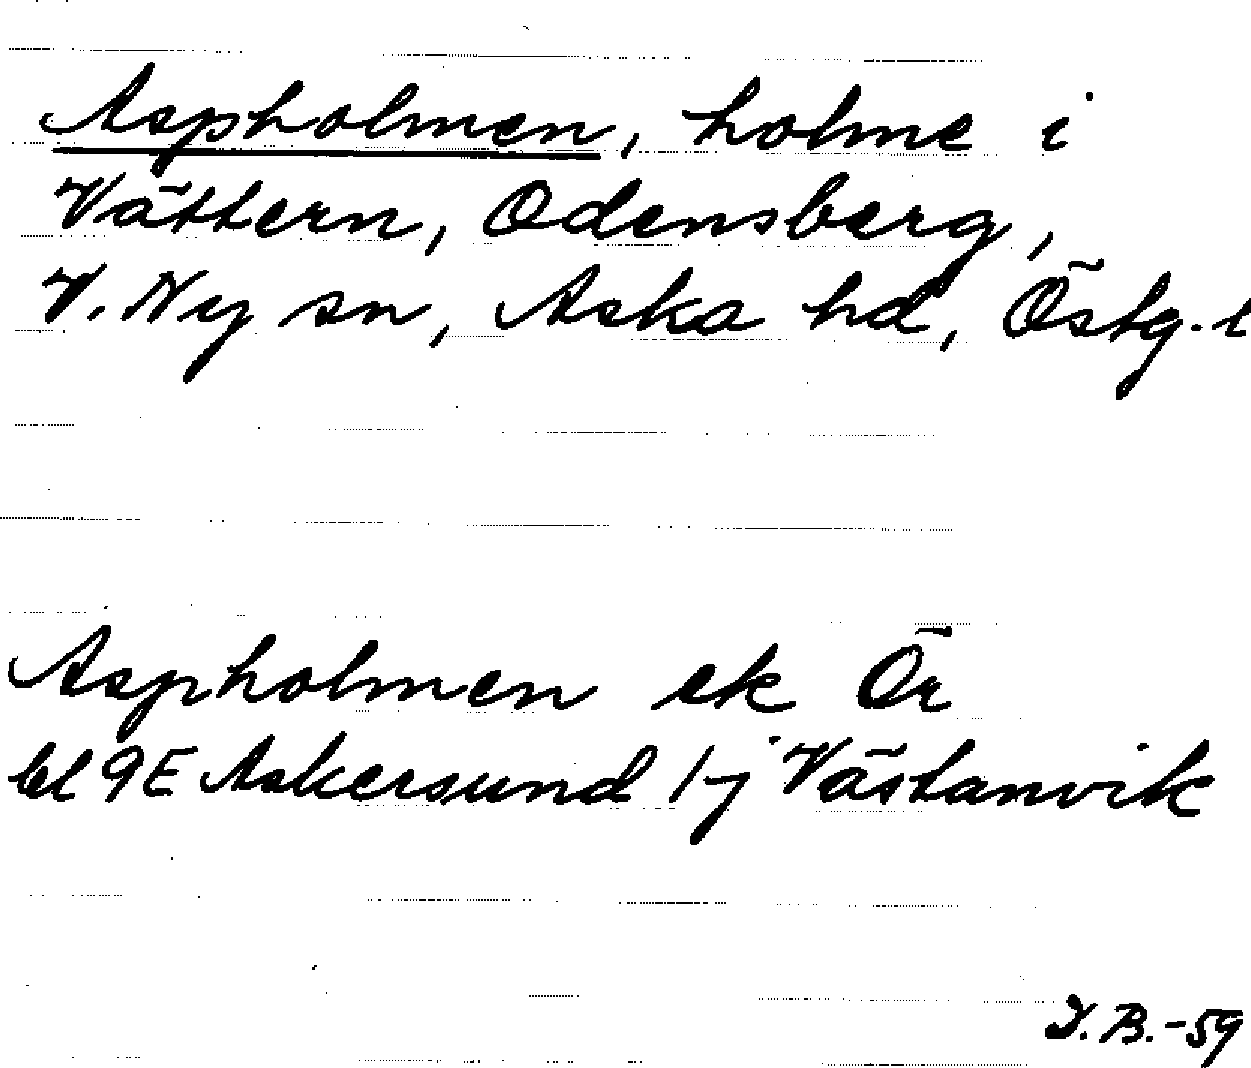 Aspholmen, holme i
Vättern, Odensberg,
V. Ny sn, Aska hd, Östg. l
Aspholmen ek Ör
bl 9E Askersund 1 j Västanvik
I.B.-59